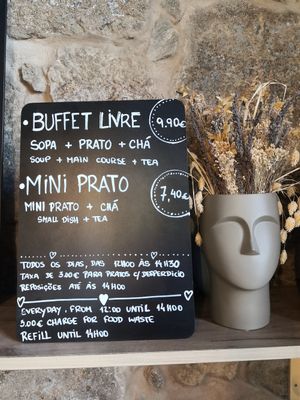 • BUFFET LIVRE 9,90€
SOPA + PRATO + CHÁ
SOUP + MAIN COURSE + TEA
• MINI PRATO 7,40€
MINI PRATO + CHÁ
SMALL DISH + TEA
TODOS OS DIAS, DAS 12H00 ÀS 14H30
TAXA DE 3.00€ PARA PRATOS C/ DESPERDÍCIO
REPOSIÇÕES ATÉ ÀS 14H00
EVERYDAY, FROM 12:00 UNTIL 14H00
3.00€ CHARGE FOR FOOD WASTE
REFILL UNTIL 14H00